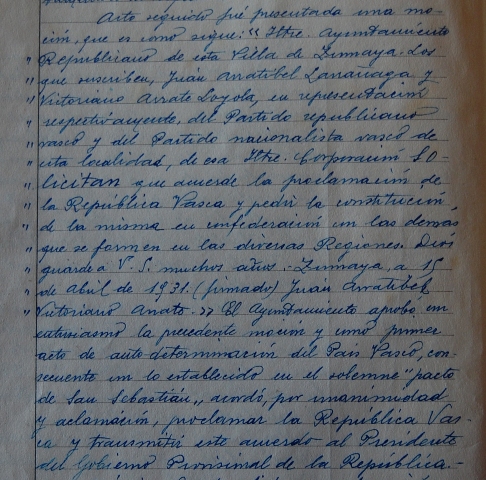 Acto seguido fué presentada una mo-
ción, que es como sigue: "Iltre. Ayuntamiento
" Republicano de esta Villa de Zumaya. Los
" que suscriben, Juán Arratibel Larrañaga y
" Victoriano Arrate Loyola, en representación
" respectivamente, del Partido republicano
" vasco y del Partido nacionalista vasco de
" esta localidad, de esa Iltre. Corporación SO-
" LICITAN que acuerde la proclamación de
" la República Vasca y pedir la constitución
" de la misma en confederación con las demás
" que se formen en las diversas Regiones. Dios
" guarde a V. S. muchos años.- Zumaya, a 15
" de Abril de 1931. (firmado) Juán Arratibel
" Victoriano Arrate.» El Ayuntamiento aprobó con
entusiasmo la precedente moción y como primer
acto de auto determinación del País Vasco, con-
secuente con lo establecido en el solemne "pacto
de San Sebastián", acordó, por unanimidad
y aclamación, proclamar la República Vas-
ca y transmitir este acuerdo al Presidente
del Gobierno Provisional de la República.-